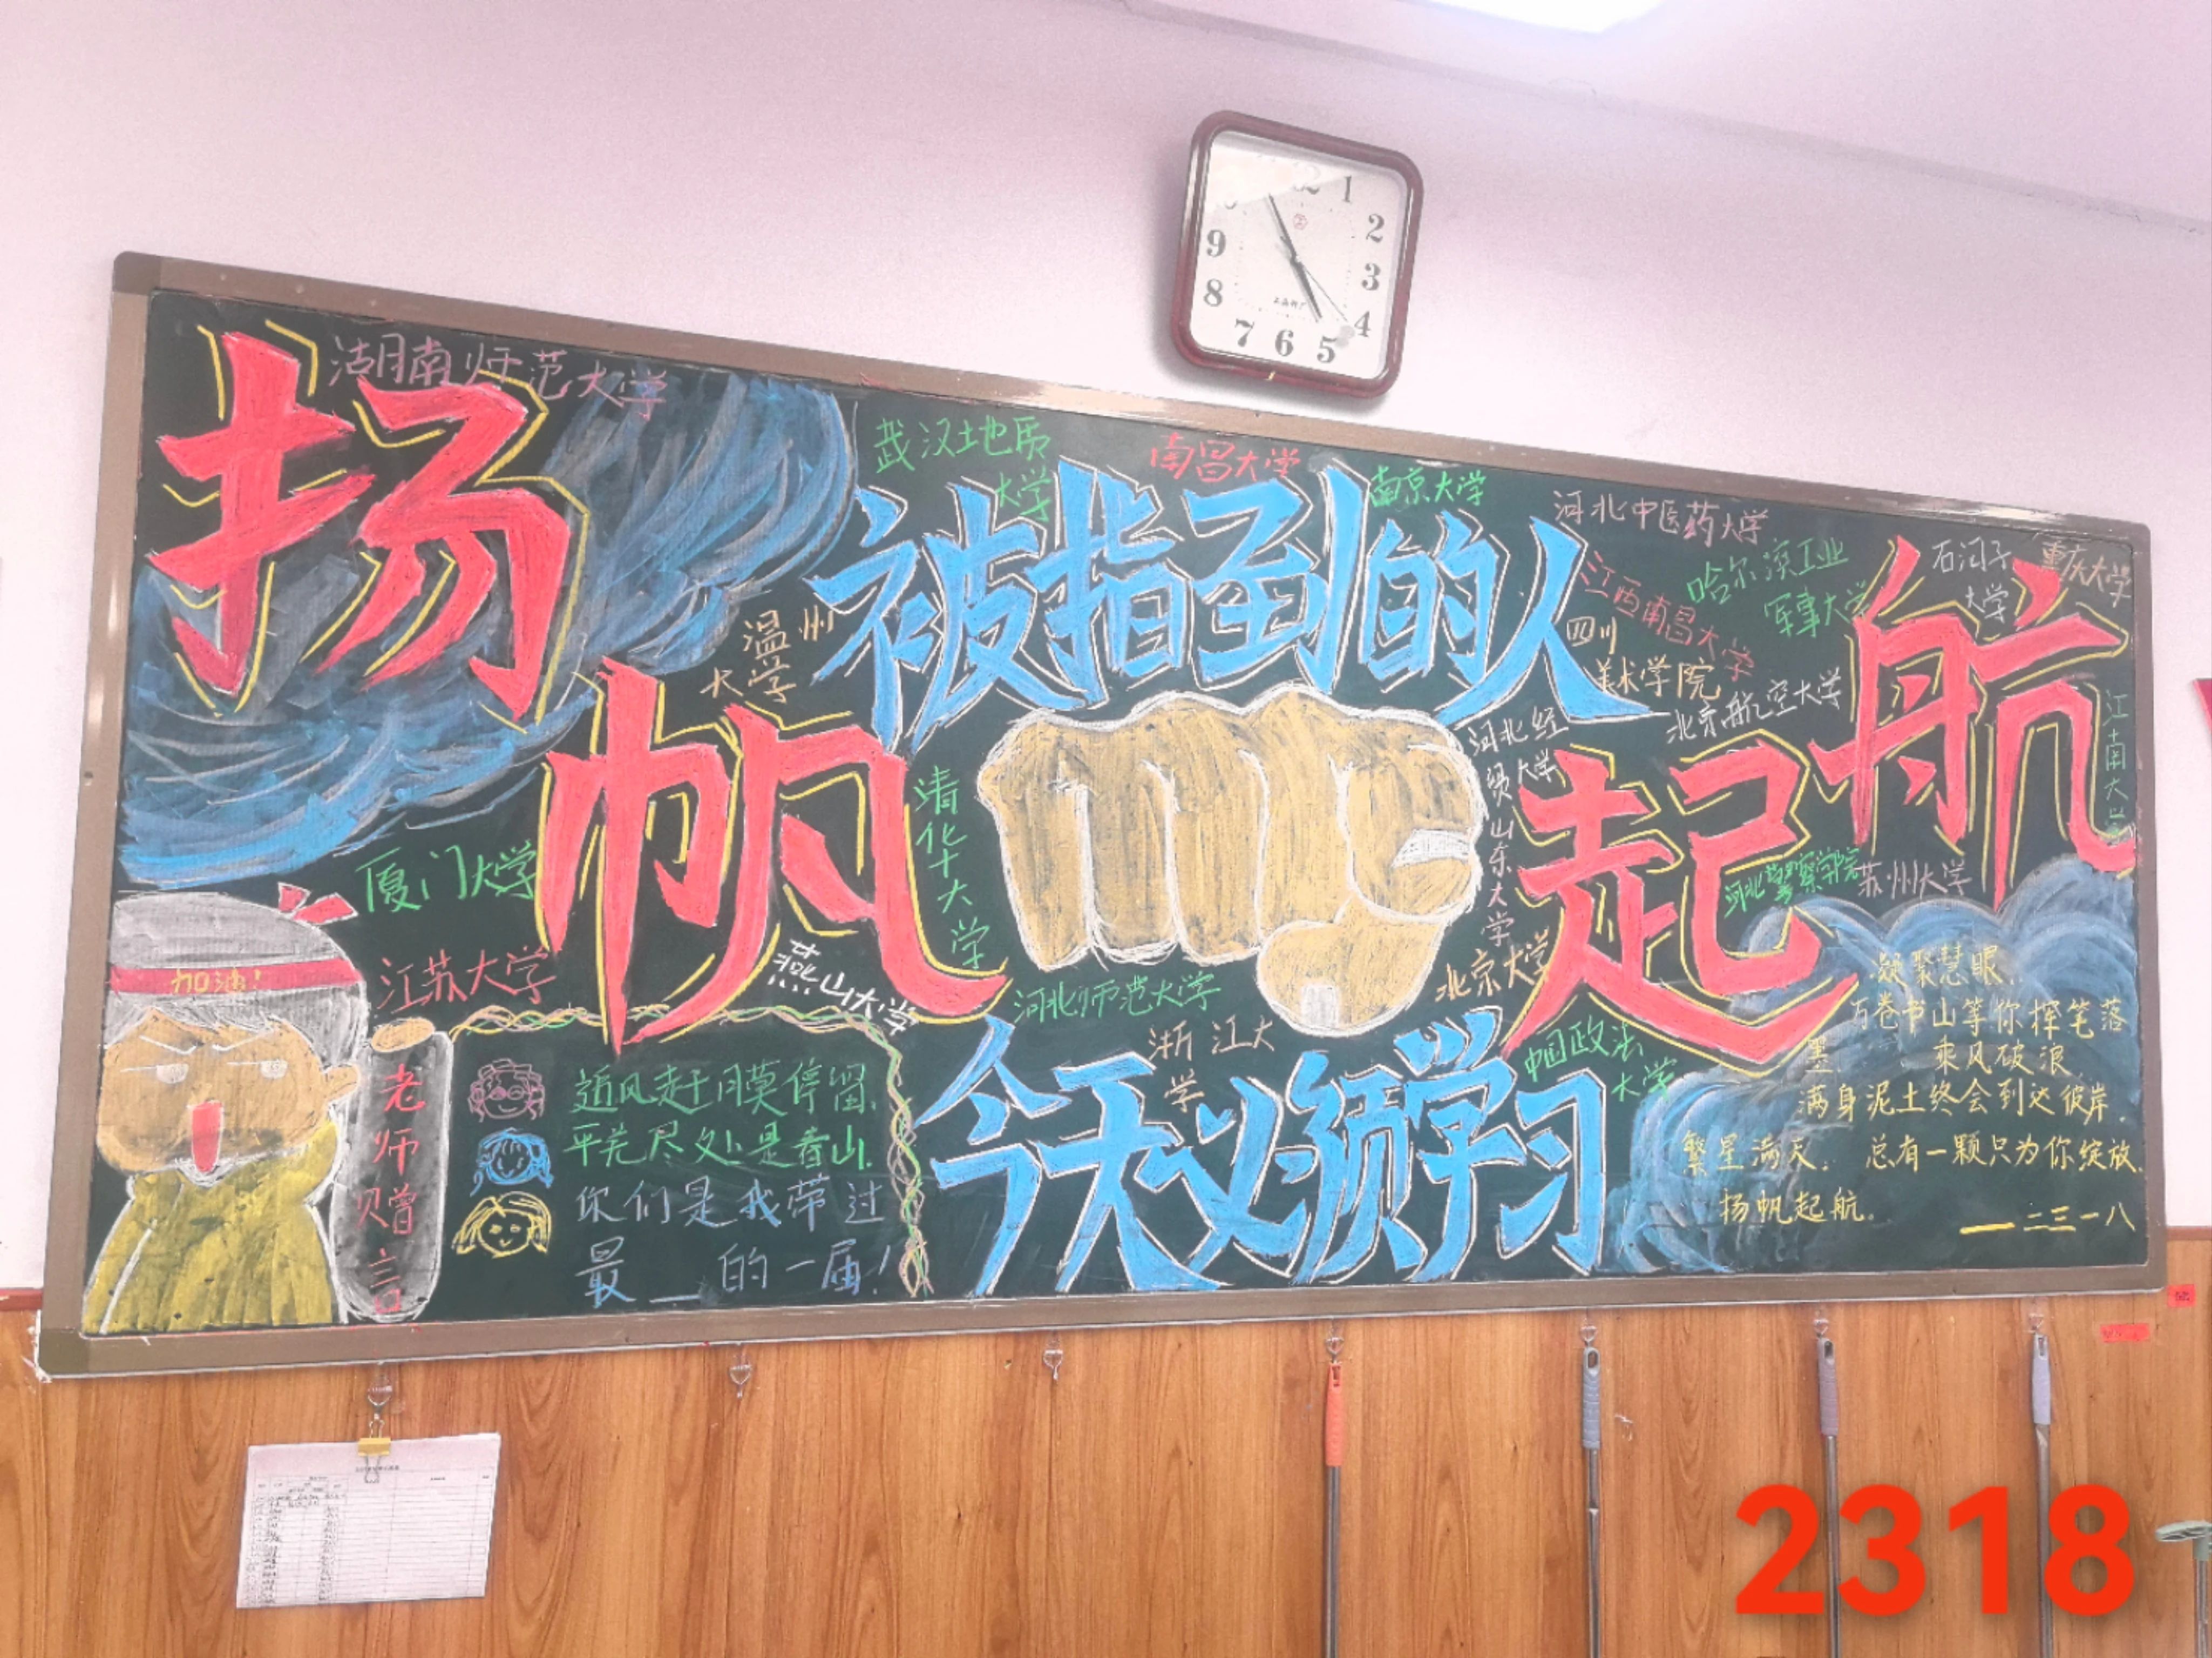 12 1
2
3
4
5
6
7
8
9
扬帆起航
湖南师范大学
武汉土地质
大学
南昌大学
南京大学
河北中医药大学
石河子
大学
重庆大学
哈尔滨工业
军事大学
江西南昌大学
被指到的人
温州
大学
四川
美术学院
北京航空大学
江南大学
河北经
贸大学
山东大学
清华大学
厦门大学
河北警察学院
苏州大学
江苏大学
燕山大学
河北师范大学
北京大学
浙江大
学
中国政法
大学
今天必须学习
加油!
老师赠言
追风赶月莫停留.
平芜尽处是春山.
你们是我带过
最__的一届!
凝聚慧眼.
万卷书山等你挥笔落
墨 乘风破浪
满身泥土终会到达彼岸.
繁星满天. 总有一颗只为你绽放.
扬帆起航.
——二三一八
2318